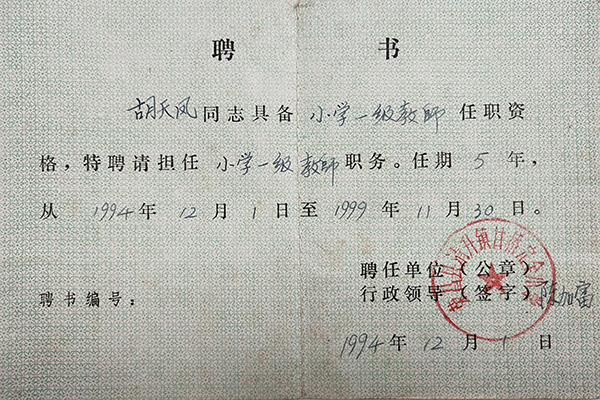 聘 书
胡天凤同志具备 小学一级教师 任职资
格，特聘请担任 小学一级教师职务。任期 5 年，
从 1994年 12 月 1 日至 1999 年 11 月 30 日。
聘任单位（公章）
聘书编号： 行政领导（签字）陈加富
1994年 12 月 1 日